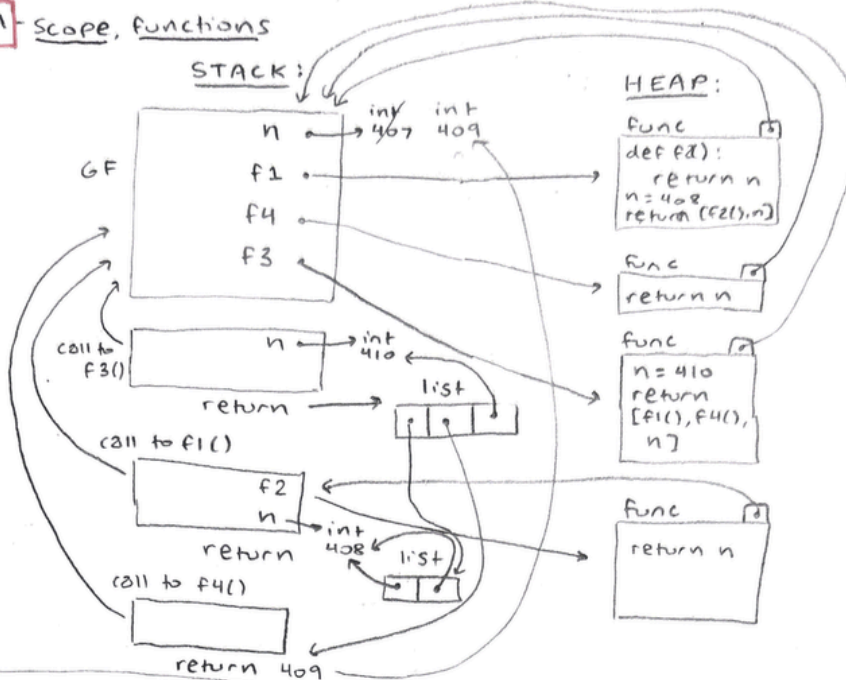 1 - Scope, functions
STACK:
HEAP:
GF
n
int
407
int
409
f1
f4
f3
func
def f2():
return n
n = 408
return [f2(), n]
func
return n
func
n = 410
return
[f1(), f4(),
n]
call to
f3()
n
int
410
return
list
call to f1()
f2
n
int
408
return
list
func
return n
call to f4()
return 409